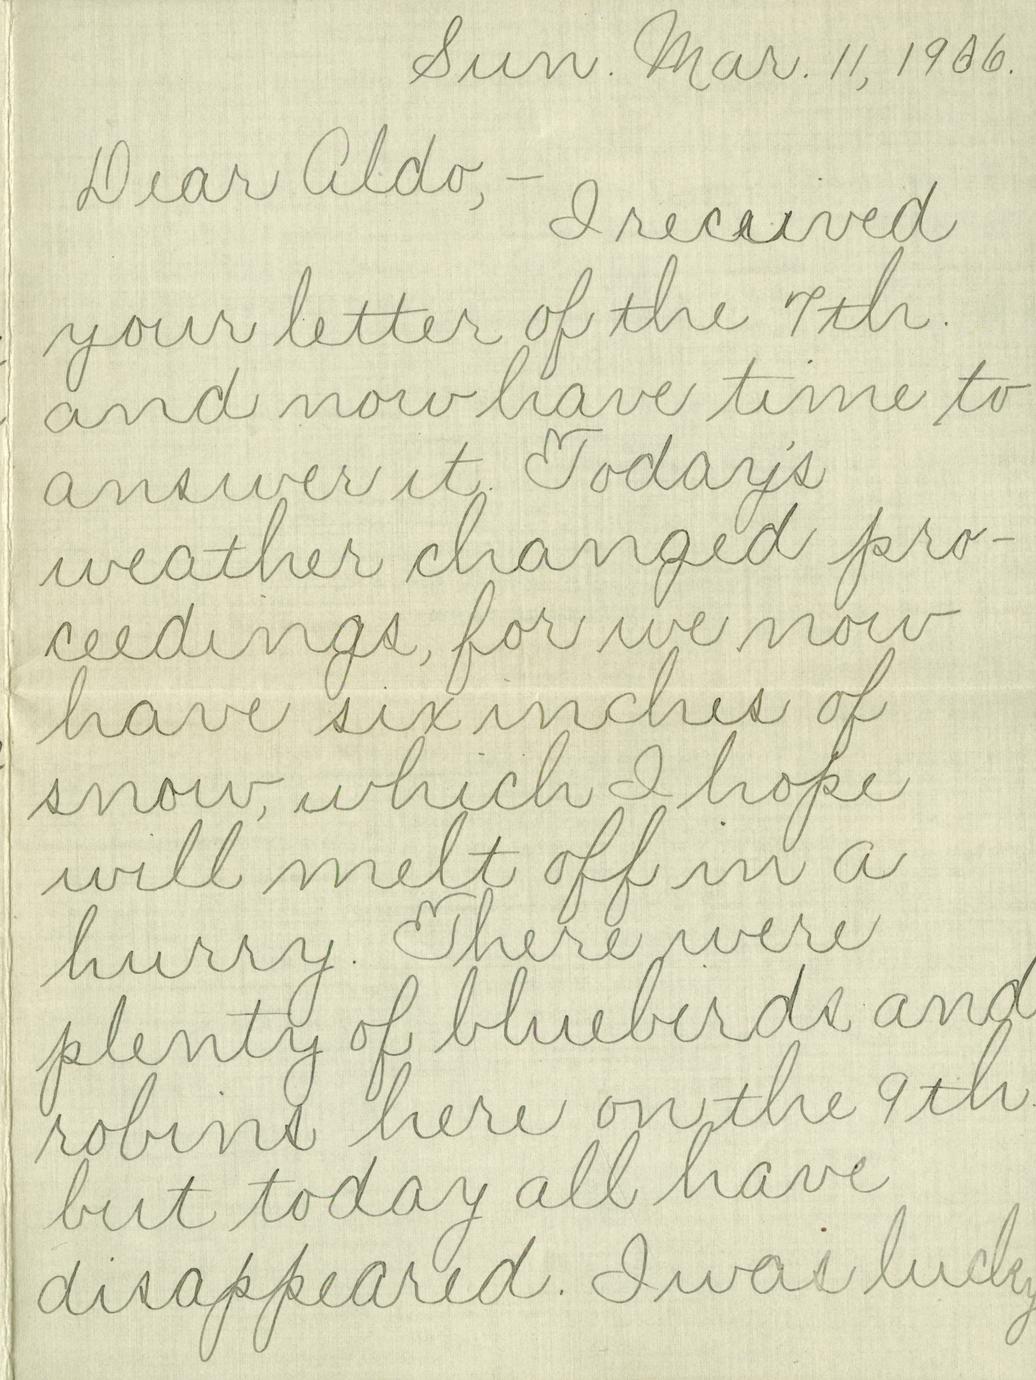 Sun. Mar. 11, 1906.
Dear Aldo, —
I received
your letter of the 7th.
and now have time to
answer it. Today's
weather changed pro-
ceedings, for we now
have six inches of
snow, which I hope
will melt off in a
hurry. There were
plenty of bluebirds and
robins here on the 9th.
but today all have
disappeared. I was lucky